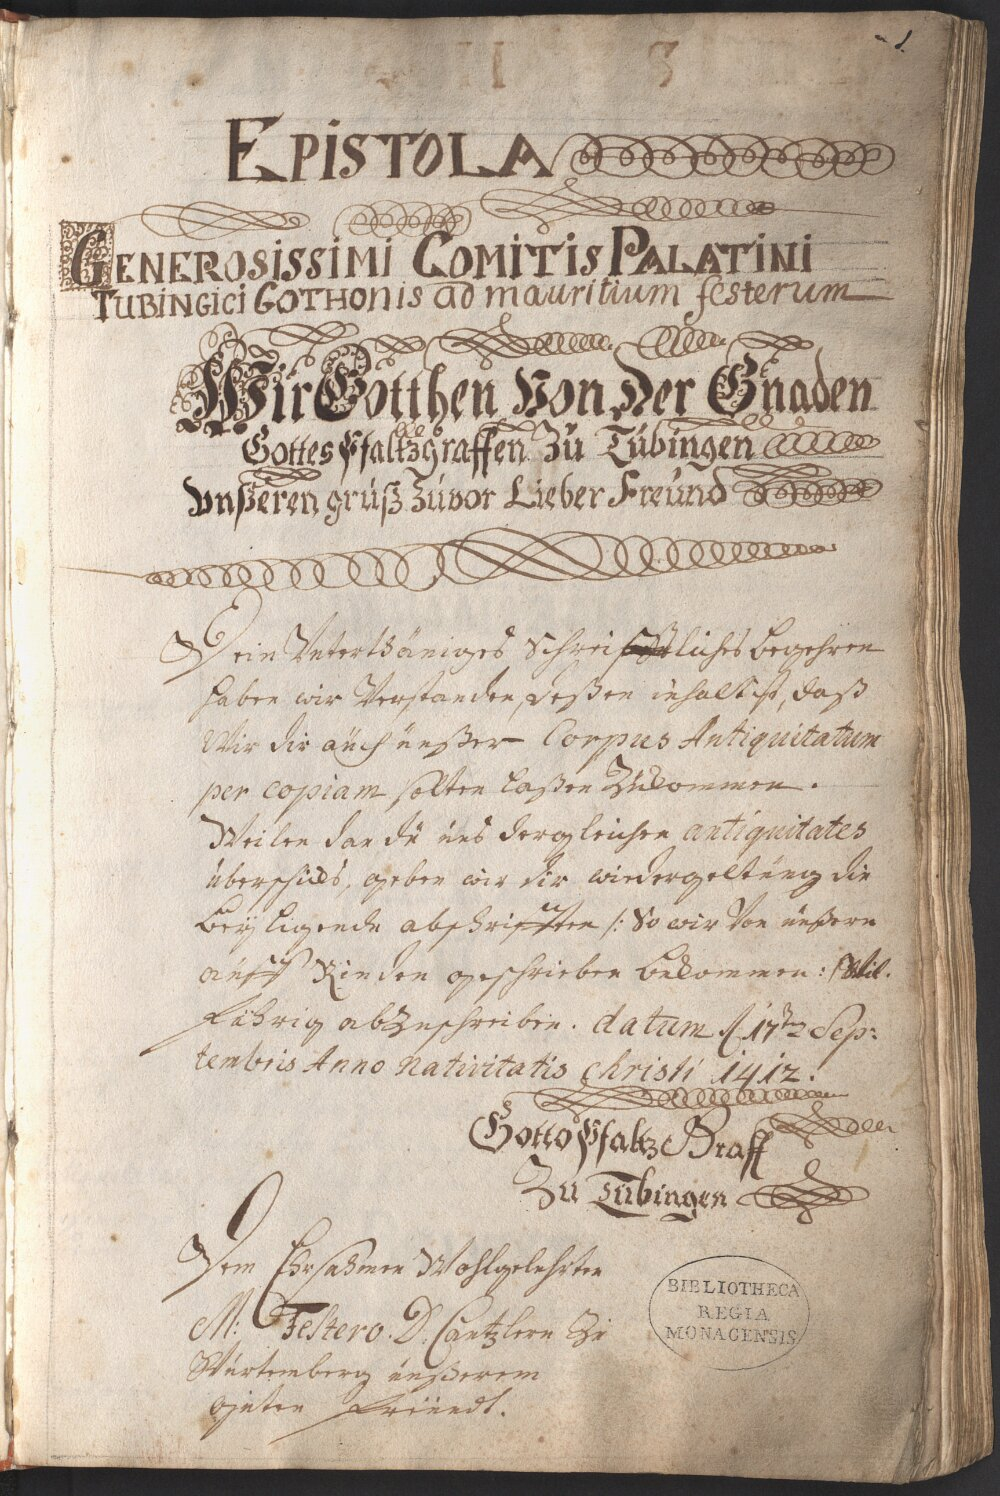 1.
EPISTOLA
GENEROSISSIMI COMITIS PALATINI
TUBINGICI GOTHONIS ad mauritium festerum
Wir Gotthen Von Der Gnaden
Gottes Pfaltzgraffen Zu Tübingen
Vnßeren gruß Zuvor Lieber Freund
Dein Unterthäniges Schreifftliches begehren
haben wir Verstanden, deßen inhalt ist, daß
Wir dir auch unßer Corpus Antiquitatum
per copiam solten laßen Zukommen.
Weilen dan du uns dergleichen antiquitates
überschicks, geben wir dir wiedergeltung die
beyligende abschrifften /: So wir Von unßern
auff Rinden geschrieben bekommen :/ Wil.
fährig abzuschreiben. datum d 17ten Sep:
tembris Anno nativitatis christi 1412.
Gotto Pfaltz Graff
Zu Tübingen
Dem Ehrsahmen Wohlgelehrten
M: Festero. D. Cantzlern Zu
Würtemberg unßerem
guten Freundt.
BIBLIOTHECA
REGIA
MONACENSIS